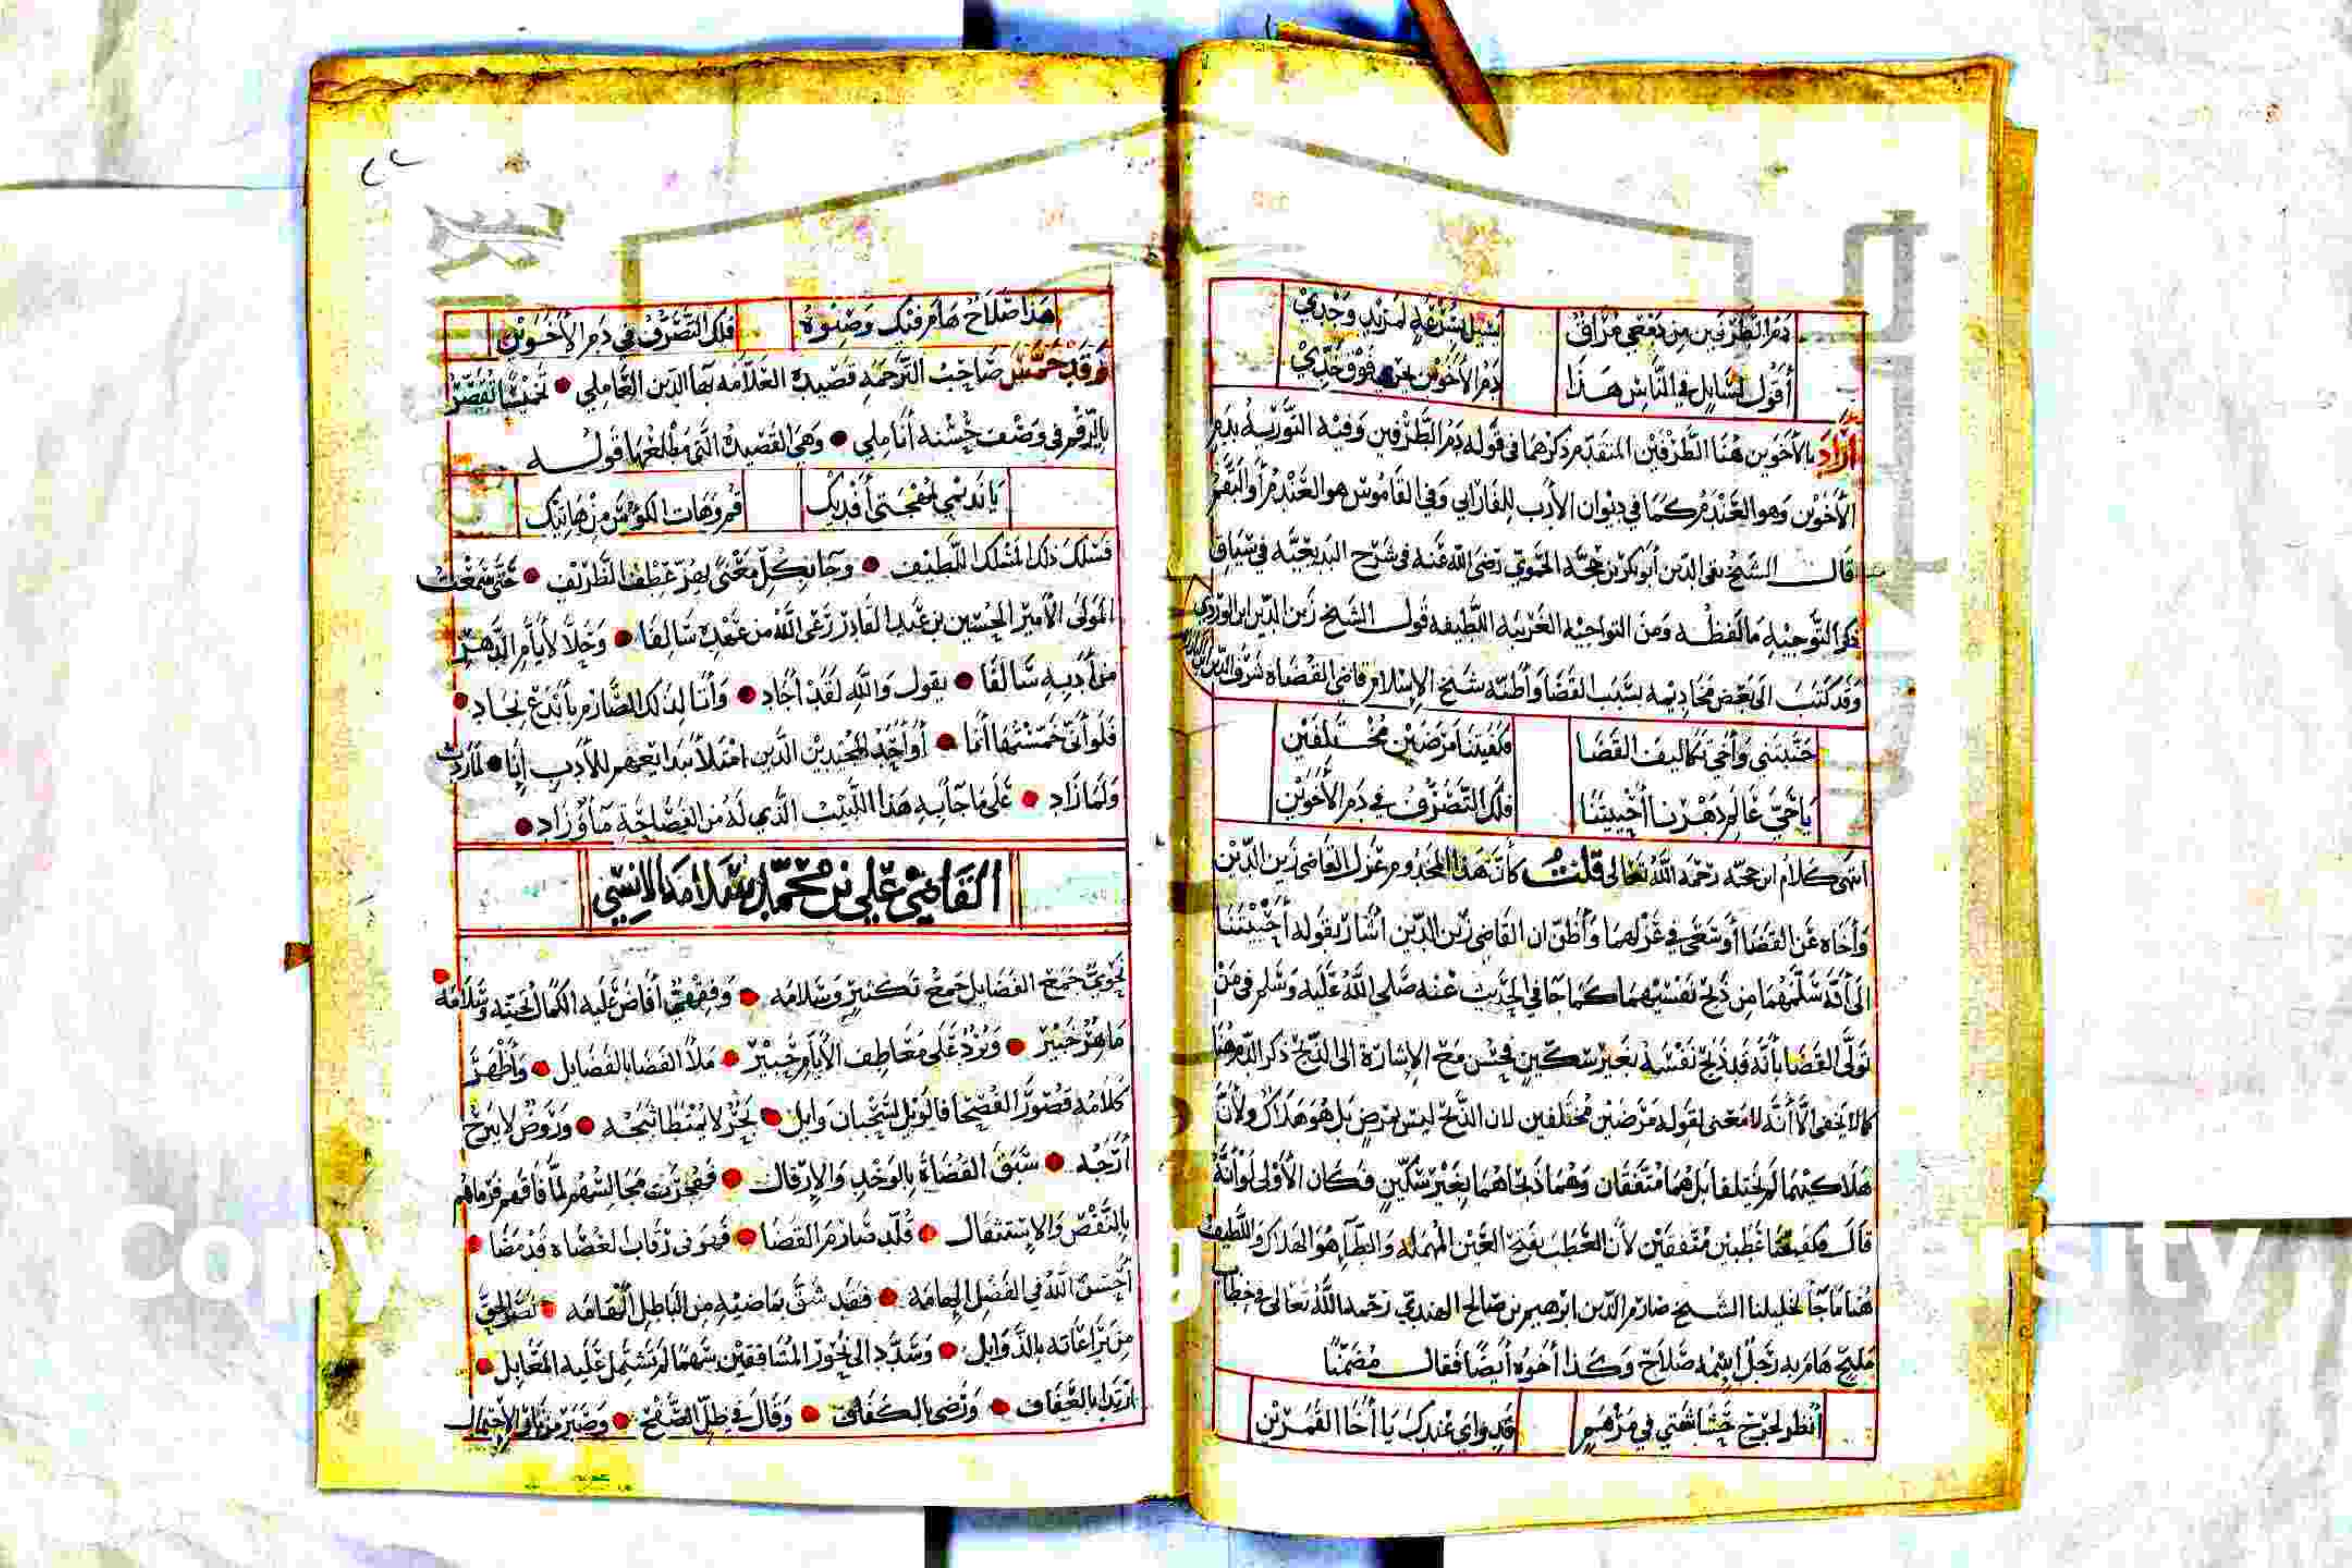 دم الطرفين من دمعي مراق يسيل بسرعة لمزيد وجدي
أقول لسايل في الناس هذا دم الأخوين يجري فوق خدي
أراد بالأخوين هنا الطرفين المتقدم ذكرهما في قوله دم الطرفين وفيه التورية بدم
الأخوين وهو العندم كما في ديوان الأدب للفارابي وفي القاموس هو العندم أو البقم
قال الشيخ تقي الدين أبو بكر بن حجة الحموي رضي الله عنه في شرح البديعية في سياق
ذكر التوجيه ما لفظه ومن التواجيه الغريبة اللطيفة قول الشيخ زين الدين ابن الوردي
وقد كتب الى بعض مخاديمه بسبب القضا وأظنه شيخ الإسلام قاضي القضاة شرف الدين
جنبتني وأخي تكاليف القضا وكفيتنا مرضين مختلفين
يا حي عالم دهرنا أحييتنا فلك التصرف في دم الأخوين
انتهى كلام ابن حجة رحمه الله تعالى قلت كأن هذا المخدوم عزل القاضي زين الدين
وأخاه عن القضا أو سعى في عزلهما وأظن ان القاضي زين الدين أشار بقوله أحييتنا
الى أنه سلمهما من ذبح نفسيهما كما جا في الحديث عنه صلى الله عليه وسلم في من
تولى القضا بأنه قد ذبح نفسه بغير سكين فحسن مع الإشارة الى الذبح ذكر الدم هنا
كما لا يخفى الا أنه لا معنى لقوله مرضين مختلفين لان الذبح ليس بمرض بل هو هلاك ولأن
هلاكيهما لم يختلفا بل هما متفقان وهما ذبحاهما بغير سكين فكان الأولى لو أنه
قال وكفيتنا عطبين متفقين لأن العطب بفتح العين المهملة والطاء هو الهلاك واللطيف
هنا ما جا لخليلنا الشيخ صارم الدين ابرهيم بن صالح الهندي رحمه الله تعالى في خطاب
مليح هام به رجل اسمه صلاح وكذا أخوه أيضا فقال مضمنا
أنظر لجرح حشاشتي في مرهم قد واي عندك يا أخا القمرين
هذا صلاح هام فيك وصنوه فلك التصرف في دم الأخوين
وقد خمس صاحب الترجمة قصيدة العلامة بها الدين العاملي تخميسا تقصر
بالرقم في وصف حسنه أناملي وهي القصيدة التي مطلعها قوله
يا نديمي بمهجتي أفديك قم وهات الكؤس من هاتيك
فسلك ذلك المسلك اللطيف وجا بكل معنى يهز عطف الظريف حتى سمعت
المولى الأمير الحسين بن عبد القادر رعى الله من عهده سالفا وحلا لأيام الدهر
من أدبه سالفا يقول والله لقد أجاد وأتا لذلك الصارم بأبدع نجاد
فلو أني خمستها أنا أو أحد المجيدين الذين امتلأ ببدايعهم للأدب إنا لما زدت
ولما زاد على ما جا به هذا اللبيب الذي له من الفصاحة ما وزاد
القاضي علي بن محمد بن سلامة الانسي
نحوي جمع الفضايل جمع تكسير وسلامه وفقيه أفاض عليه الكمال تحيته وسلامه
ماهر خبير وبرد على معاطف الأيام حبير ملأ القضا بالفضايل وأظهر
كلامه قصور الفصحا فالويل لسحبان وايل بحر لا يمتطا ثبجه وروض لا يبرح
أرجه سبق القضاة بالوخد والإرقال ففجرت مجالسهم لما فاقهم فرماهم
بالنقص والاستثقال قلد صارم القضا فهو في رقاب العصاه قد مضا
أحسن الله في الفصل إلهامه فقد شق بماضيه من الباطل الهامه نصر الحق
من يراعاته بالذوابل وسدد الى نحور المشاققين سهما لم تشتمل عليه المعابل
ارتدا بالعفاف ورضي بالكفاف وقال في ظل الصفح وصبر من ثاني الإحتمال